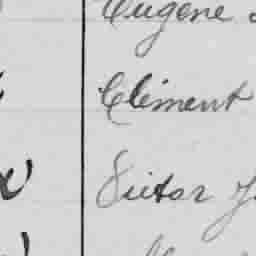 Eugene
Clement
Victor J.